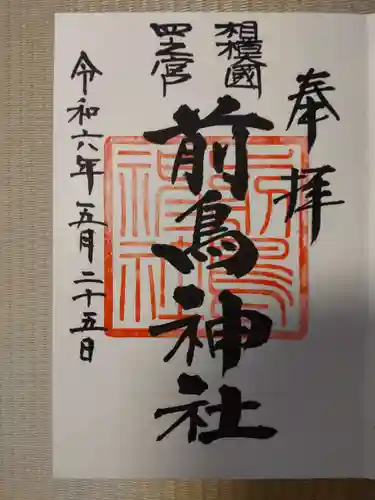 奉拝
相模國
四之宮
前鳥神社
令和六年五月二十五日
前鳥神社